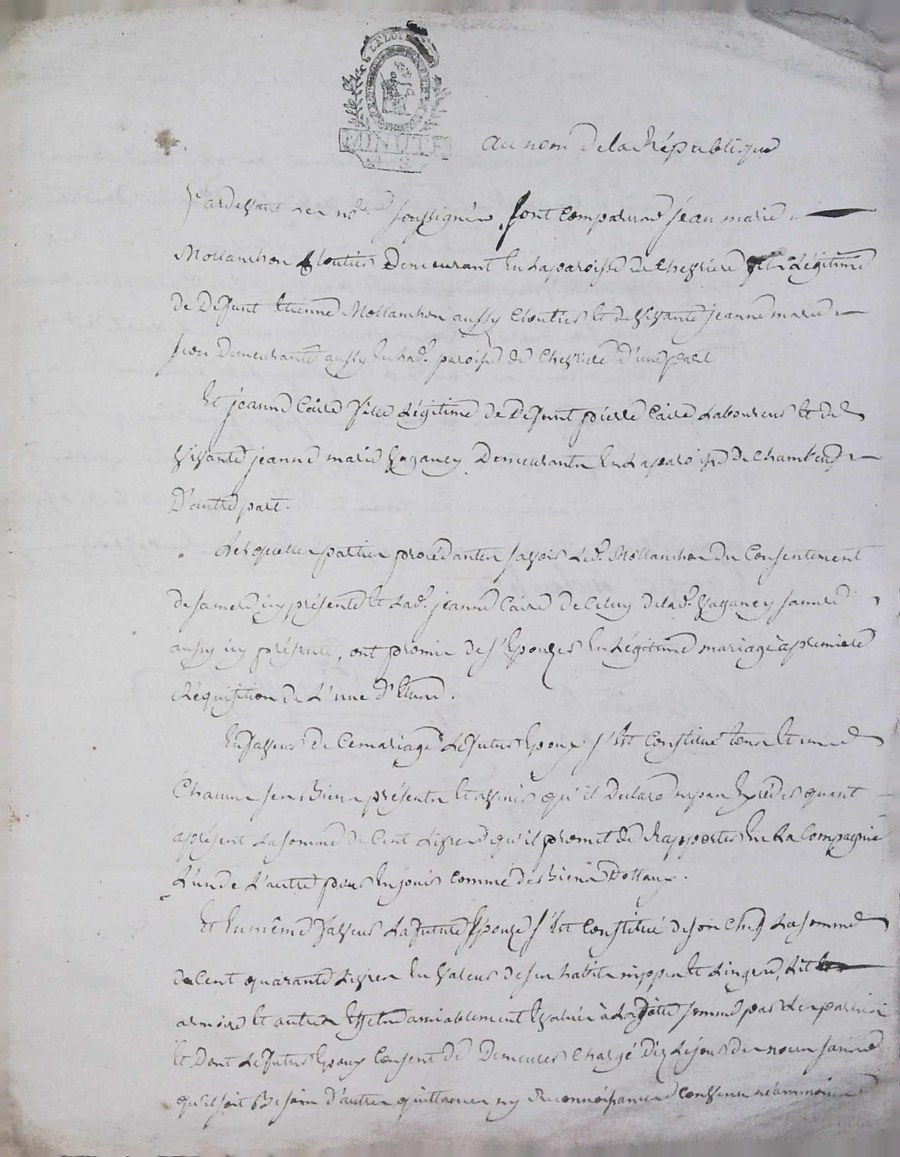 LA LOI
MINUTE
au nom de la République
Pardevant les no.res soussignés sont comparus jean marie
Mollanchon Cloutier Demeurant en la paroisse de Chevriere fils Légitime
de Defunt Etienne Mollanchon aussy Cloutier et de vivante jeanne marie
demeurante aussy en lad. paroisse de Chevriere d'une part
Et jeanne Caire fille Légitime de Defunt pierre Caire Laboureur et de
vivante jeanne marie Vaganey Demeurante en la paroisse de Chambeuf
D'autre part.
Lesquelles parties procédantes savoir Led. Mollanchon du Consentement
de sa mere icy présente et Lad. jeanne Caire de Celuy de lad. Vaganey sa mere
aussy icy présente, ont promis de s'Epouzer en Légitime mariage à premiere
Réquisition de L'une d'Elles.
En faveur de Ce mariage Le futur Epoux s'est Constitué tous et un
Chacun ses Biens présents et avenir qu'il Declare n'pas exceder quant
aprésent La somme de Cent Livres qu'il promet de Rapporter en La Compagnie
L'un de L'autre pour En jouir comme des Biens Dottaux.
Et en même faveur La future Epouze s'est Constitué de son Chef La somme
de Cent quarante Livres en valeur de ses habits nippes et Linges, Lit
armoire et autres Effets amiablement Evalués à Ladite somme par Les parties
Et Dont Le futur Epoux Consent de Demeurer Chargé Dez Le jour des noces sans
qu'il soit Besoin d'autre quittance ny Reconnoissance Convenu néammoins